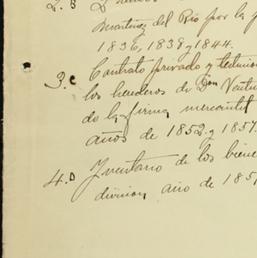 2.º D
Martinez del Rio por la p
1836, 1838 y 1844.
3.º Contrato privado y testimo
los herederos de Don Ventu
de la firma mercantil
años de 1852 y 1857.
4.º Inventario de los biene
division, año de 185